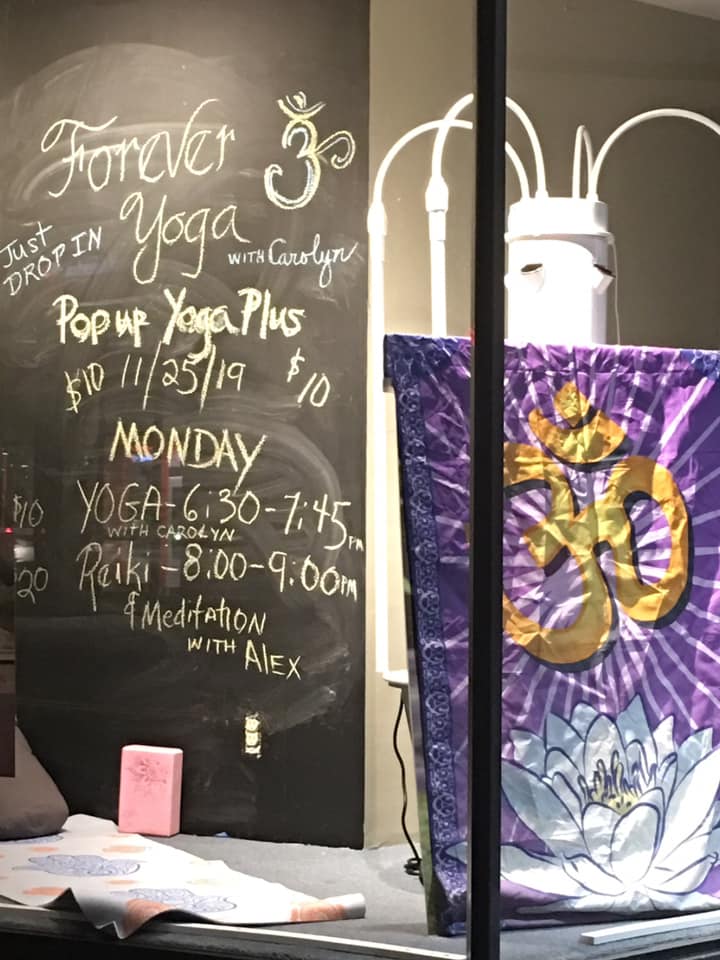 Forever ॐ
Yoga
Just
DROP IN
WITH Carolyn
Pop up Yoga Plus
$10 11/25/19 $10
MONDAY
$10 YOGA-6:30-7:45PM
WITH CAROLYN
$20 Reiki-8:00-9:00PM
& Meditation
WITH ALEX
ॐ